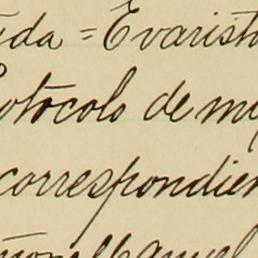 ida = Evarist
otocolo de mi
correspondien